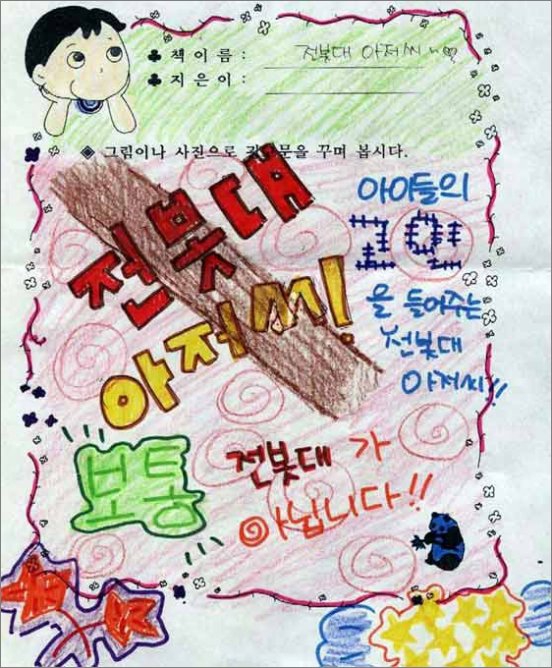 책이름 : 전봇대 아저씨~♡
지은이 :
그림이나 사진으로 꾸며 봅시다.
전봇대
아저씨!
아이들의
고민
을 들어주는
전봇대
아저씨!!
보통
전봇대 가
아닙니다!!